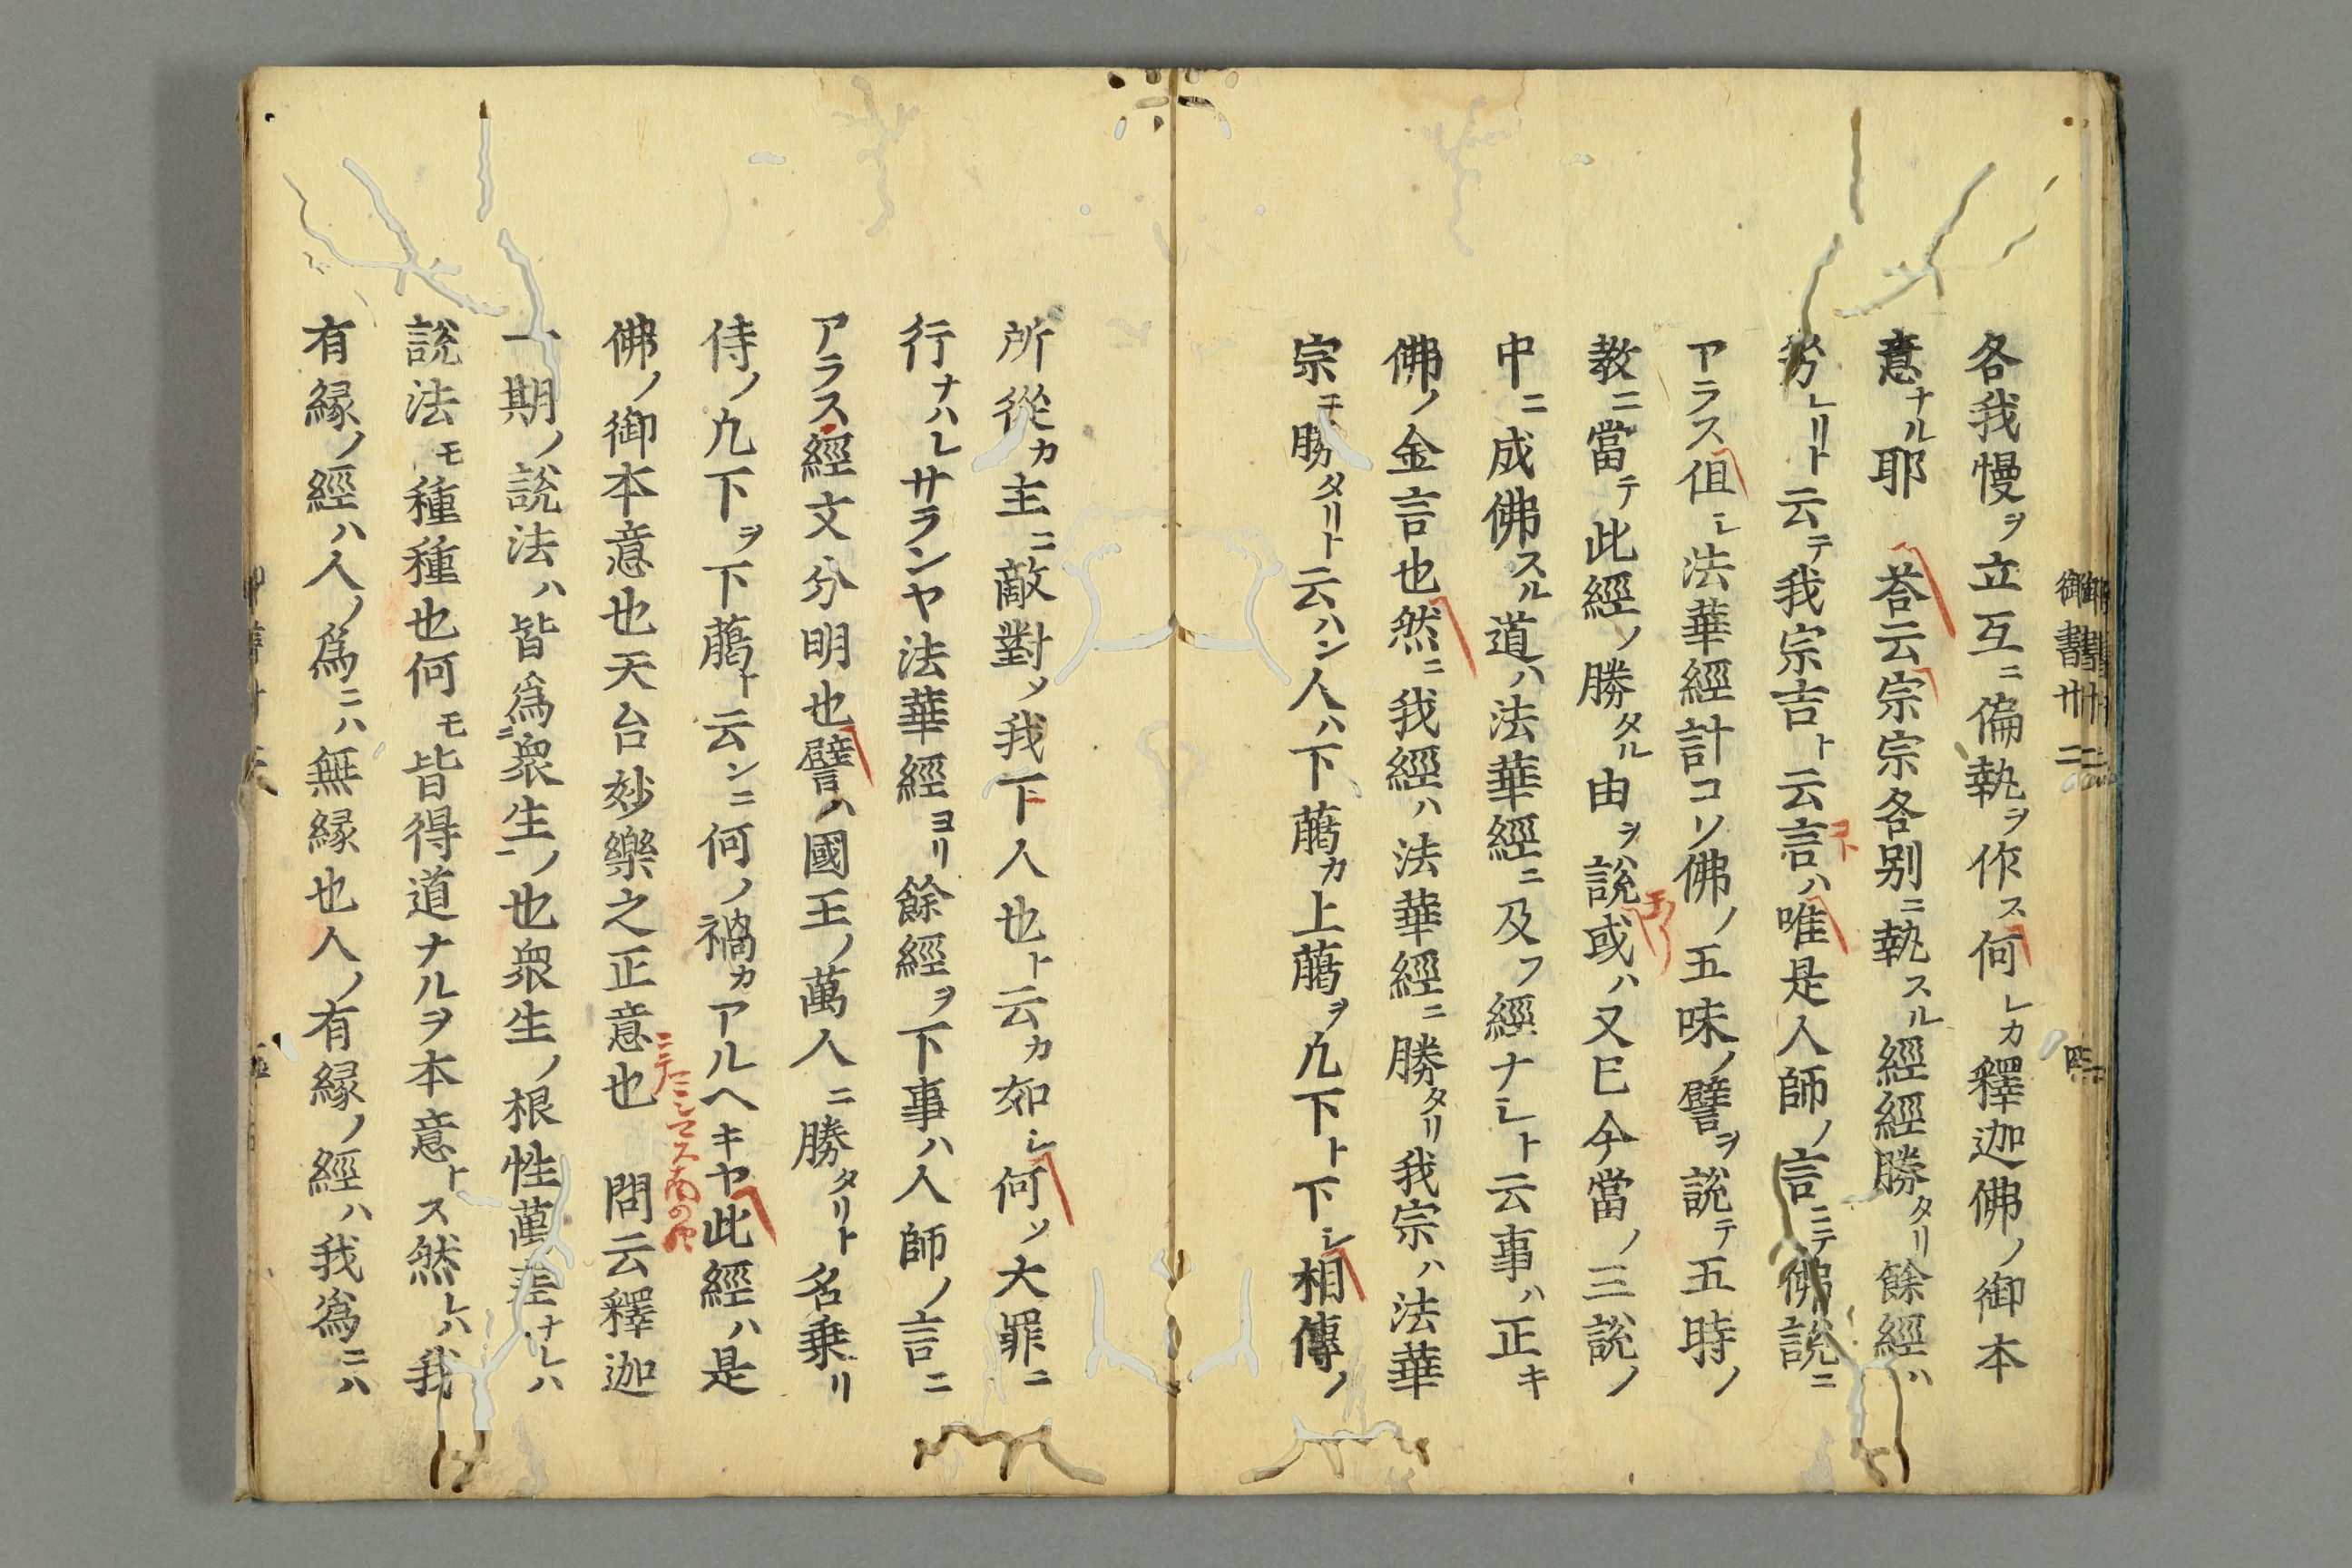 御書卅二
四
各我慢ヲ立互ニ偏執ヲ作ス何レカ釋迦佛ノ御本
意ナル耶 荅云宗宗各別ニ執スル經經勝タリ餘經ハ
劣レリト云テ我宗吉ト云言ハ唯是人師ノ言ニテ佛說ニ
コト
アラス但シ法華經計コソ佛ノ五味ノ譬ヲ說テ五時ノ
教ニ當テ此經ノ勝タル由ヲ說或ハ又已今當ノ三說ノ
中ニ成佛スル道ハ法華經ニ及フ經ナシト云事ハ正キ
佛ノ金言也然ニ我經ハ法華經ニ勝タリ我宗ハ法華
宗ニ勝タリト云ハン人ハ下﨟カ上﨟ヲ凢下ト下シ相傳ノ
所從カ主ニ敵對ノ我下人也ト云カ如シ何ソ大罪ニ
行ナハレサランヤ法華經ヨリ餘經ヲ下事ハ人師ノ言ニ
アラス經文分明也譬ハ國王ノ萬人ニ勝タリト名乗リ
侍ノ凢下ヲ下﨟ト云ンニ何ノ禍カアルヘキヤ此經ハ是
佛ノ御本意也天台妙樂之正意也 問云釋迦
一期ノ說法ハ皆爲衆生ノ也衆生ノ根性萬差ナレハ
說法モ種種也何モ皆得道ナルヲ本意トス然レハ我
有縁ノ經ハ人ノ爲ニハ無縁也人ノ有縁ノ經ハ我爲ニハ